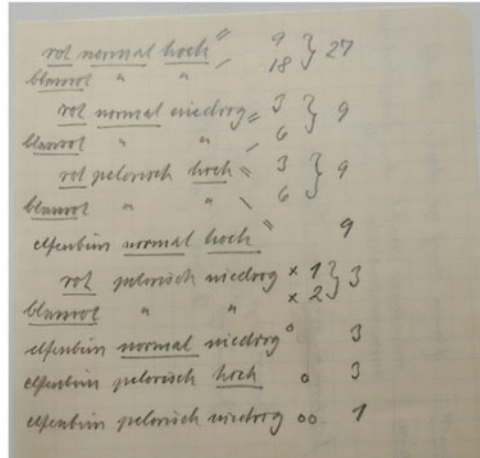 rot normal hoch = 9 } 27
blaurot " " – 18
rot normal niedrig = 3 } 9
blaurot " " – 6
rot pelorisch hoch = 3 } 9
blaurot " " – 6
elfenbein normal hoch " 9
rot pelorisch niedrig × 1 } 3
blaurot " " × 2
elfenbein normal niedrig ° 3
elfenbein pelorisch hoch o 3
elfenbein pelorisch niedrig oo 1